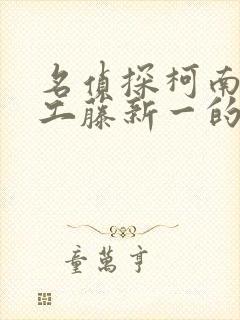 名侦探柯南
工藤新一的
童萬亨